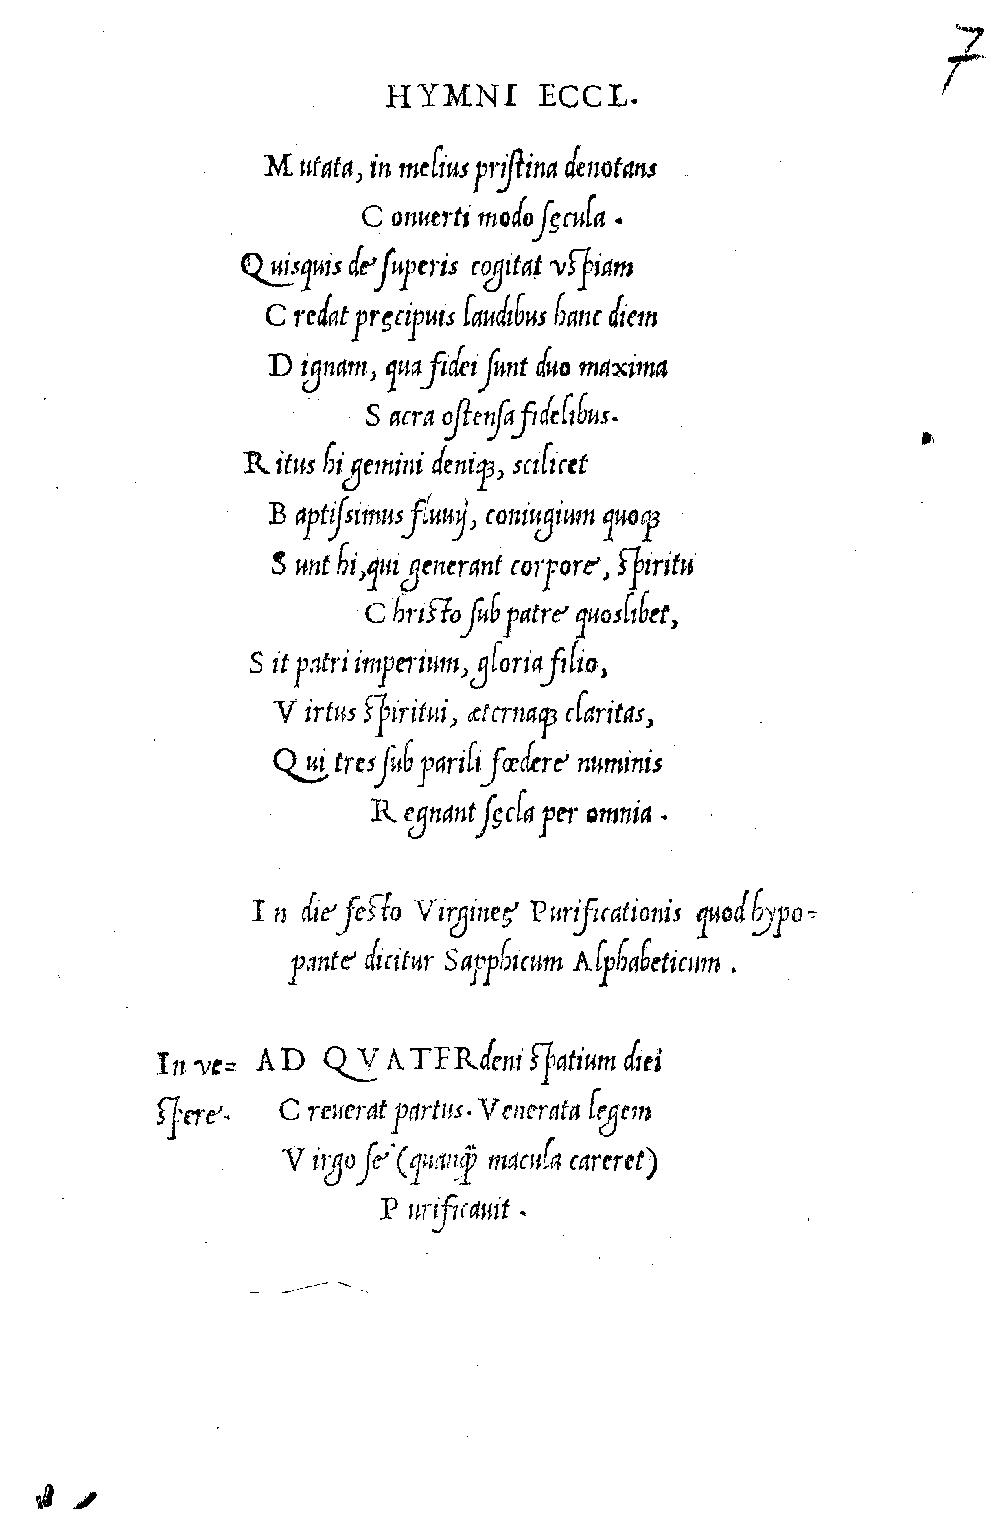 7
HYMNI ECCL.
Mutata, in melius priſtina denotans
Conuerti modo ſęcula.
Quisquis de ſuperis cogitat vſpiam
Credat pręcipuis laudibus hanc diem
Dignam, qua fidei ſunt duo maxima
Sacra oſtenſa fidelibus.
Ritus hi gemini deniqꝫ, scilicet
Baptiſsimus fluuij, coniugium quoqꝫ
Sunt hi, qui generant corpore, ſpiritu
Chriſto ſub patre quoslibet,
Sit patri imperium, gloria filio,
Virtus ſpiritui, æternaqꝫ claritas,
Qui tres ſub parili fœdere numinis
Regnant ſęcla per omnia.
In die feſto Virgineę Purificationis quod hypo=
pante dicitur Sapphicum Alphabeticum.
In ve= AD QVATERdeni ſpatium diei
ſpere. Creuerat partus. Venerata legem
Virgo ſe (quanqꝫ̃ macula careret)
Purificauit.